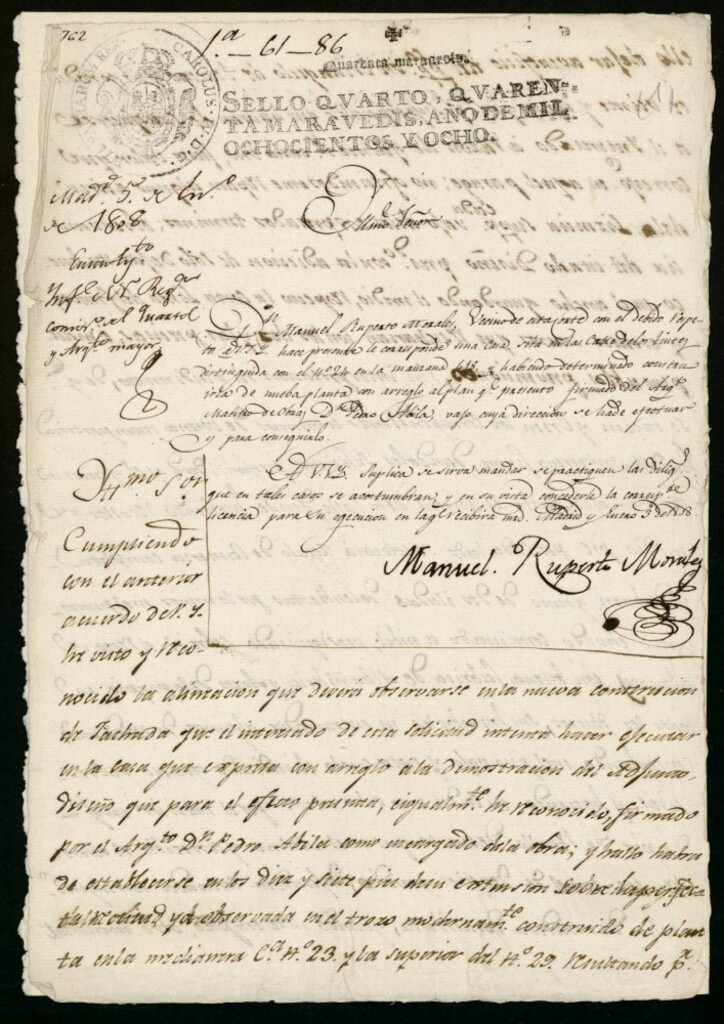 762
1.ª - 61 - 86
Quarenta maravedis.
CAROLUS IV D G
SELLO QVARTO, QVAREN-
TA MARAVEDIS, AÑO DE MIL
OCHOCIENTOS Y OCHO.
Mad.d 5. de En.o
de 1808
Illmo. Señor
Inf.e el S.r Reg.or
comis.o del Quartel
y Arq.to mayor
D.n Manuel Ruperto Morales, Vecino de esta corte con el debido respe-
to à V.S.Y. hace presente le corresponde una casa sita en la Calle de
distinguida con el nº 24 en la manzana y habiendo determinado constru-
irla de nueba planta con arreglo al plan q.e presento firmado del Arq.to
Maestro de Obras D.n Pedro Abila, vajo cuya direccion se ha de efectuar
y para conseguirlo.
A V.S.Y. Suplica se sirva mandar se practiquen las dilig.s
que en tales casos se acostumbran; y en su vista concederle la corresp.te
licencia para su egecucion en lo q.e recibirá mrd. Madrid y Enero 3 de 1808
Manuel Ruperto Morales
Yll.mo S.or
Cumpliendo
con el anterior
acuerdo de V.S.Y.
he visto y reco-
nocido la alineacion que deverá observarse en la nueva construccion
de Fachada que el interesado de esta solicitud intenta hacer efecutar
en la casa que expresa con arreglo à la demostracion del adjunto
diseño que para el efecto presenta, è igualm.te he reconocido, firmado
por el Arq.to D.n Pedro Abila como encargado de la obra; y hallo habra
de establecerse en los diez y siete pies de su extension sobre la perfec-
ta rectitud y observada en el trozo modernam.te construido de plan-
ta en la medianeria C.a N.º 23. y la superior del N.º 29. resultando p.a